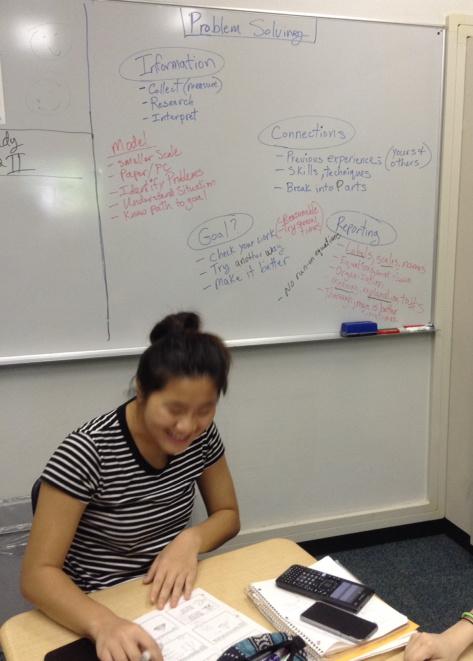 Problem Solving
Information
- Collect (measure)
- Research
- Interpret
Model
- Smaller Scale
- Paper/PC
- Identify Problems
- Understand Situation
- Know path to goal
Connections
- Previous experiences (yours & others)
- Skills, techniques
- Break into Parts
Goal?
- Check your work
- Try another way
- Make it better
- Reasonable
- Try several times
Reporting
- Labels, scales, names
- Organization
- No run-on equations
II